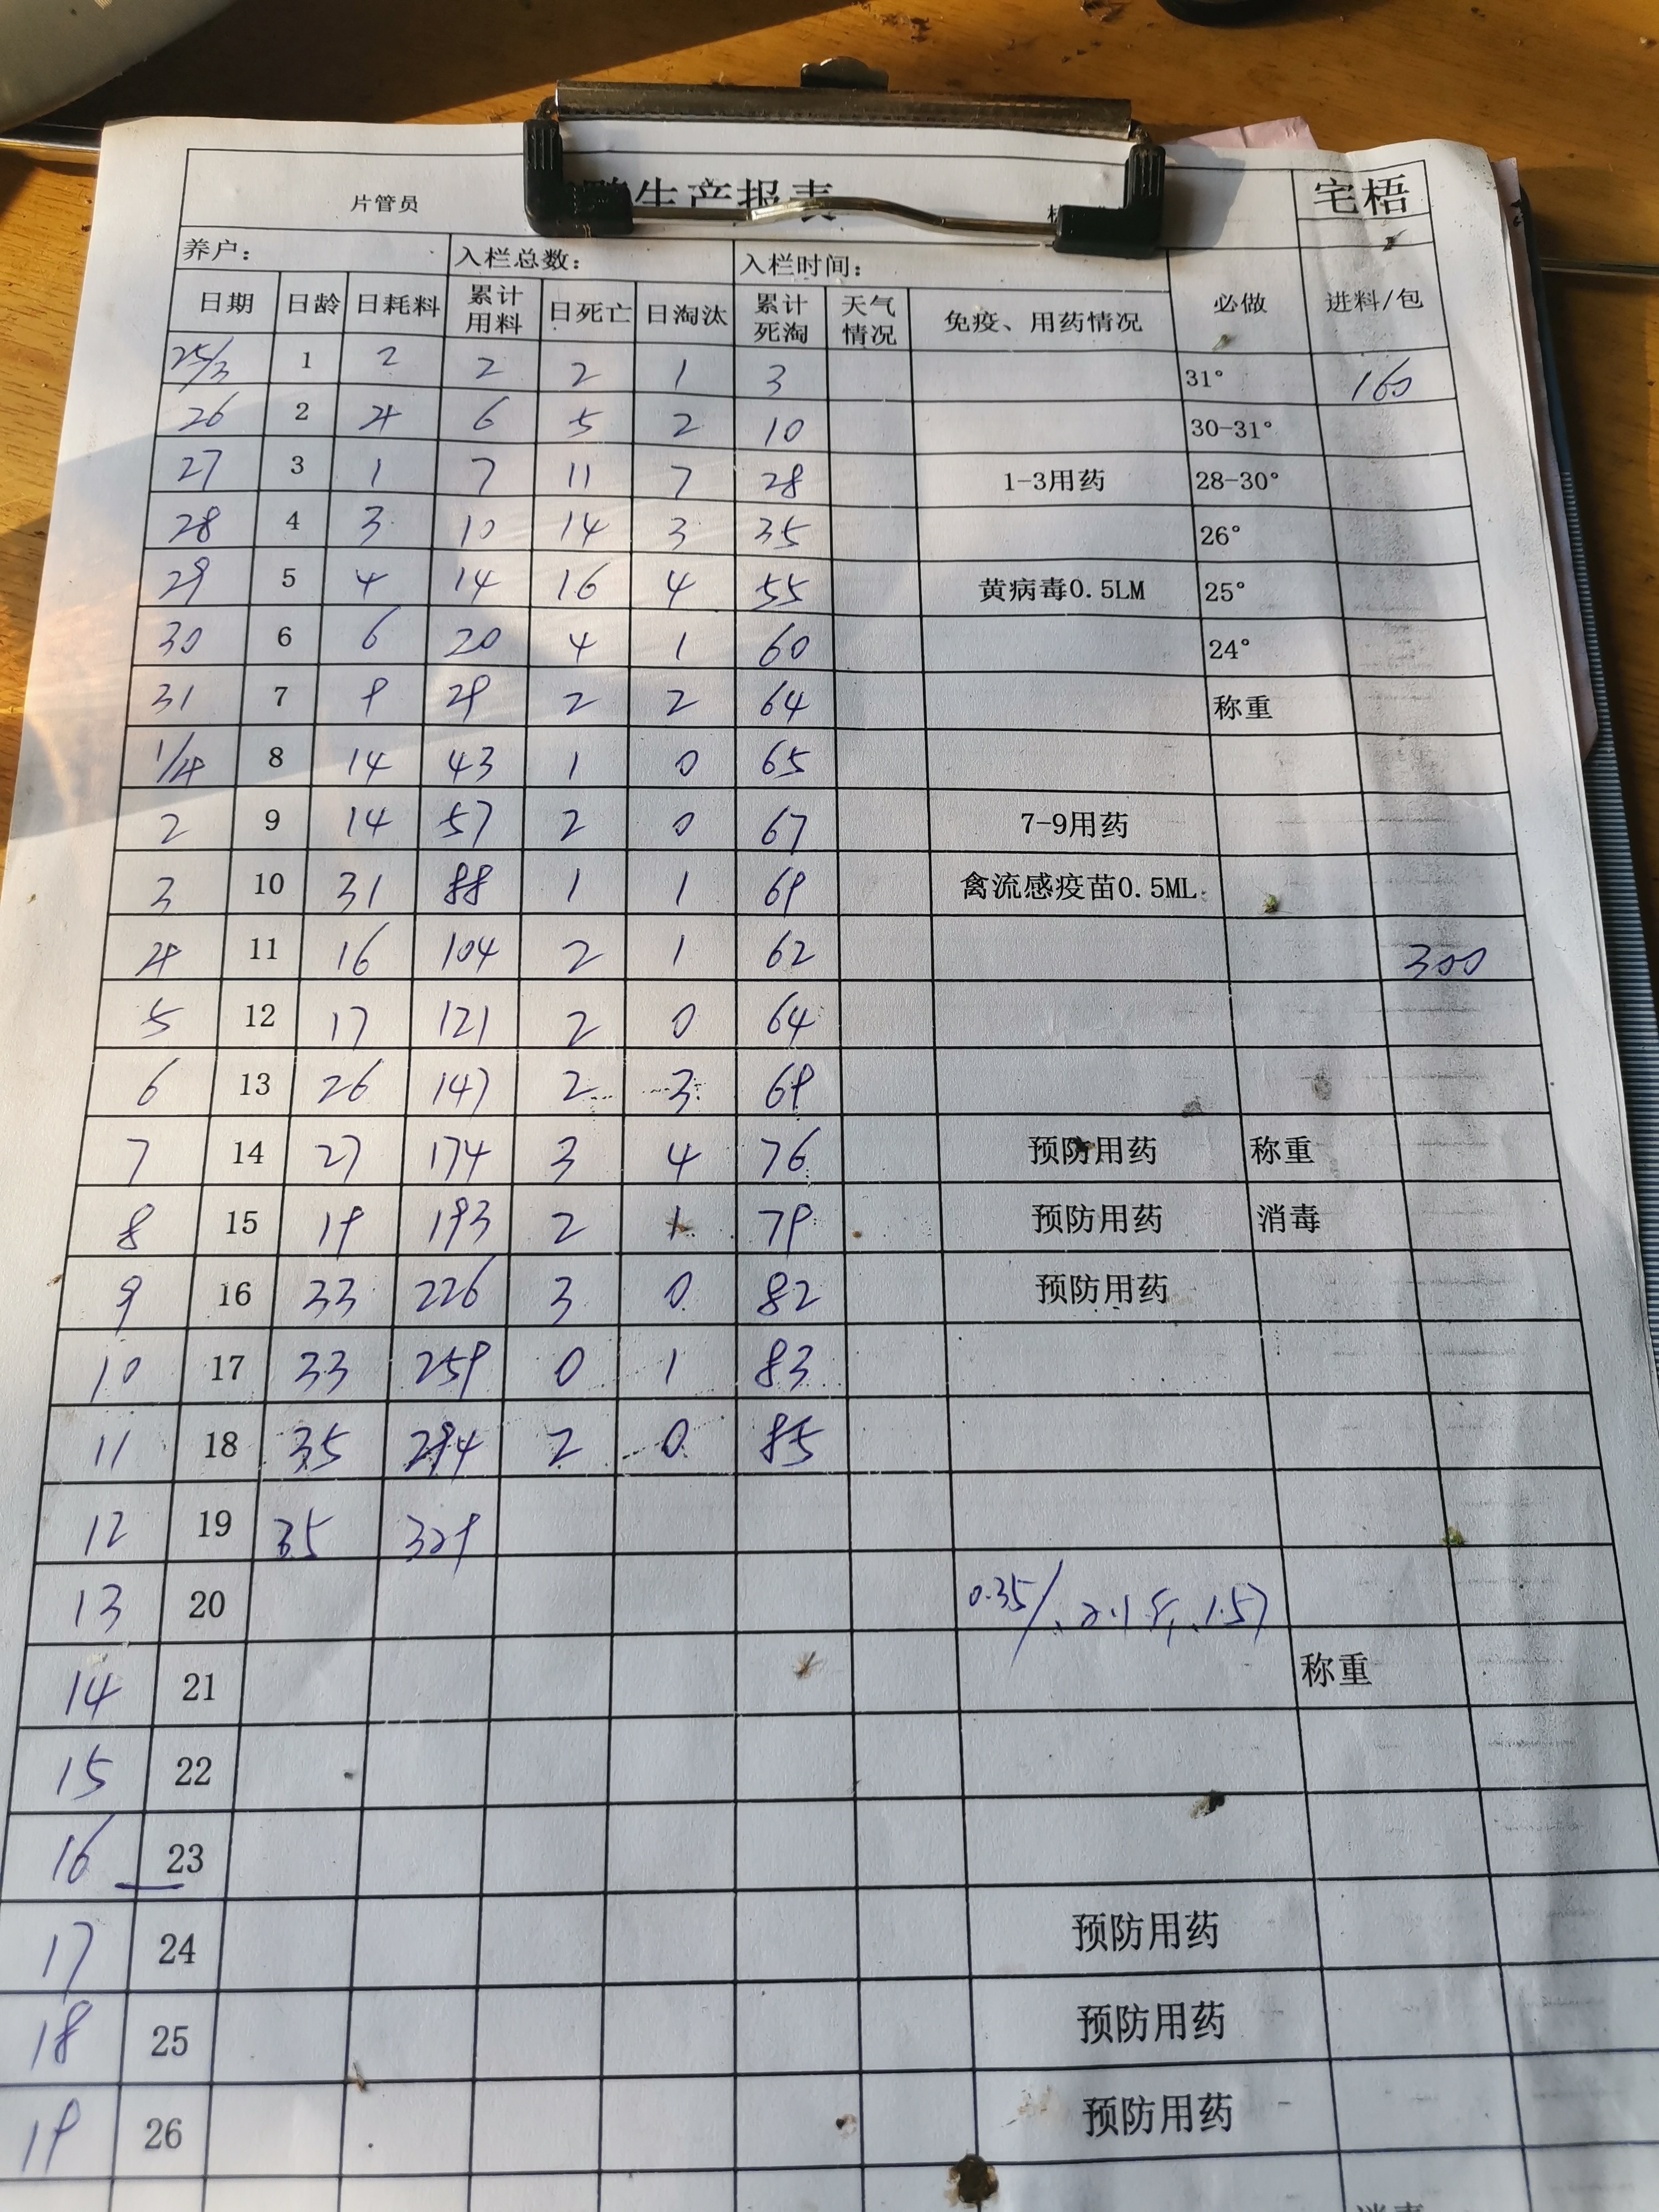 生产报表
宅梧
片管员
养户： 入栏总数： 入栏时间：
日期 日龄 日耗料 累计用料 日死亡 日淘汰 累计死淘 天气情况 免疫、用药情况 必做 进料/包
25/3 1 2 2 2 1 3 31° 160
26 2 4 6 5 2 10 30-31°
27 3 1 7 11 7 28 1-3用药 28-30°
28 4 3 10 14 3 35 26°
29 5 4 14 16 4 55 黄病毒0.5LM 25°
30 6 6 20 4 1 60 24°
31 7 9 29 2 2 64 称重
1/4 8 14 43 1 0 65
2 9 14 57 2 0 67 7-9用药
3 10 31 88 1 1 69 禽流感疫苗0.5ML
4 11 16 104 2 1 62 300
5 12 17 121 2 0 64
6 13 26 147 2 3 69
7 14 27 174 3 4 76 预防用药 称重
8 15 19 193 2 1 79 预防用药 消毒
9 16 33 226 3 0 82 预防用药
10 17 33 259 0 1 83
11 18 35 294 2 0 85
12 19 35 329
13 20 0.35/ 1.57
14 21 称重
15 22
16 23
17 24 预防用药
18 25 预防用药
19 26 预防用药